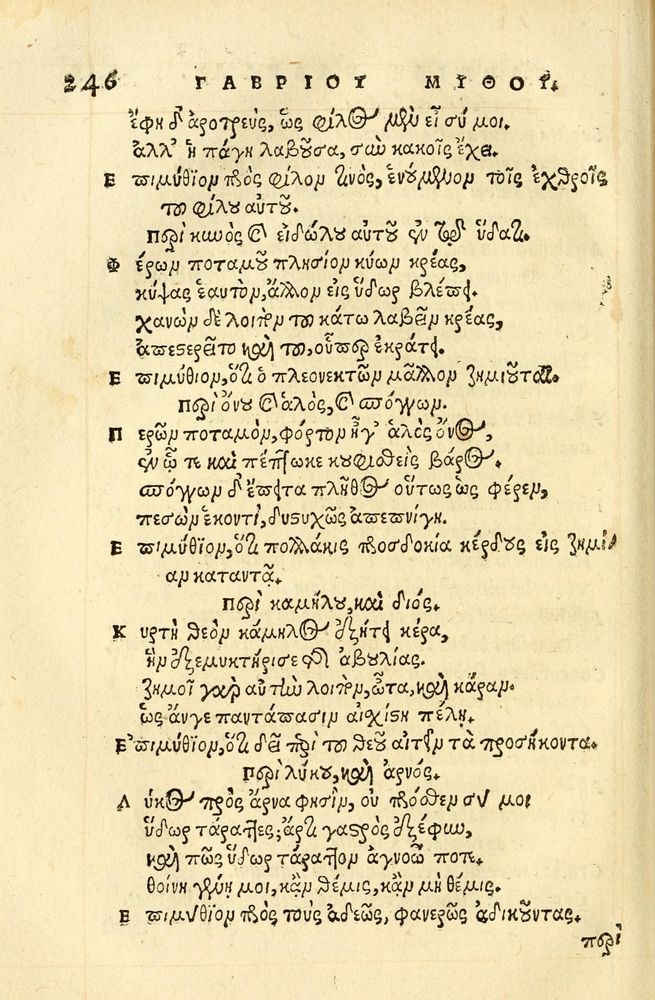 246 ΓΑΒΡΙΟΥ ΜΥΘΟΙ.
ἔφη δ' ἀροτρεὺς, ὡς φίλος μὲν εἶ σύ μοι.
ἀλλ' ἡ πάγη λαβοῦσα, σὺν κακοῖς ἔχει.
Ἐπιμύθιον πρὸς φίλον τινὸς, ἑνούμενον τοῖς ἐχθροῖς
τοῦ φίλου αὐτοῦ.
Περὶ κυνὸς καὶ εἰδώλου αὐτοῦ ἐν τῷ ὕδατι.
Φέρων ποταμοῦ πλησίον κύων κρέας,
κύψας ἑαυτὸν, ἄλλον εἰς ὕδωρ βλέπει.
χανὼν δὲ λοιπὸν τοῦ κάτω λαβεῖν κρέας,
ἀπεστερεῖτο καὶ τοῦ, οὗπερ ἐκράτει.
Ἐπιμύθιον, ὅτι ὁ πλεονεκτῶν μᾶλλον ζημιοῦται.
Περὶ ὄνου καὶ ἁλὸς, καὶ σπόγγων.
Περῶν ποταμὸν, φόρτον ἦγ' ἁλὸς ὄνος,
ἐν ᾧ τι καὶ πέπτωκε κουφισθεὶς βάρος.
σπόγγων δ' ἔπειτα πλῆθος οὕτως ὡς φέρεν,
πεσὼν ἑκοντὶ, δυστυχῶς ἀπεπνίγη.
Ἐπιμύθιον, ὅτι πολλάκις προσδοκία κέρδους εἰς ζημί
αν καταντᾷ.
Περὶ καμήλου, καὶ διός.
Κυρτὴ θεὸν κάμηλος ἐζήτει κέρα,
ἣν ἐξεμυκτήρισε τῆς ἀβουλίας.
ζημοῖ γὰρ αὐτὴν λοιπὸν, ὦτα, καὶ κάραν.
ὡς ἄνγε παντάπασιν αἰχίστη πέλῃ.
Ἐπιμύθιον, ὅτι δεῖ περὶ τοῦ θεοῦ αἰτεῖν τὰ προσήκοντα.
Περὶ λύκου, καὶ ἀρνός.
Λύκος πρὸς ἄρνα φησὶν, οὐ πρόσθεν σύ μοι
ὕδωρ τάραττες; ἄρτι γαστρὸς ἐξέφυν,
καὶ πῶς ὕδωρ τάραττον ἀγνοῶ ποτι.
θοίνη γένῃ μοι, κἂν θέμις, κἂν μὴ θέμις.
Ἐπιμύθιον πρὸς τοὺς ἀδεῶς, φανερῶς ἀδικοῦντας.
περὶ